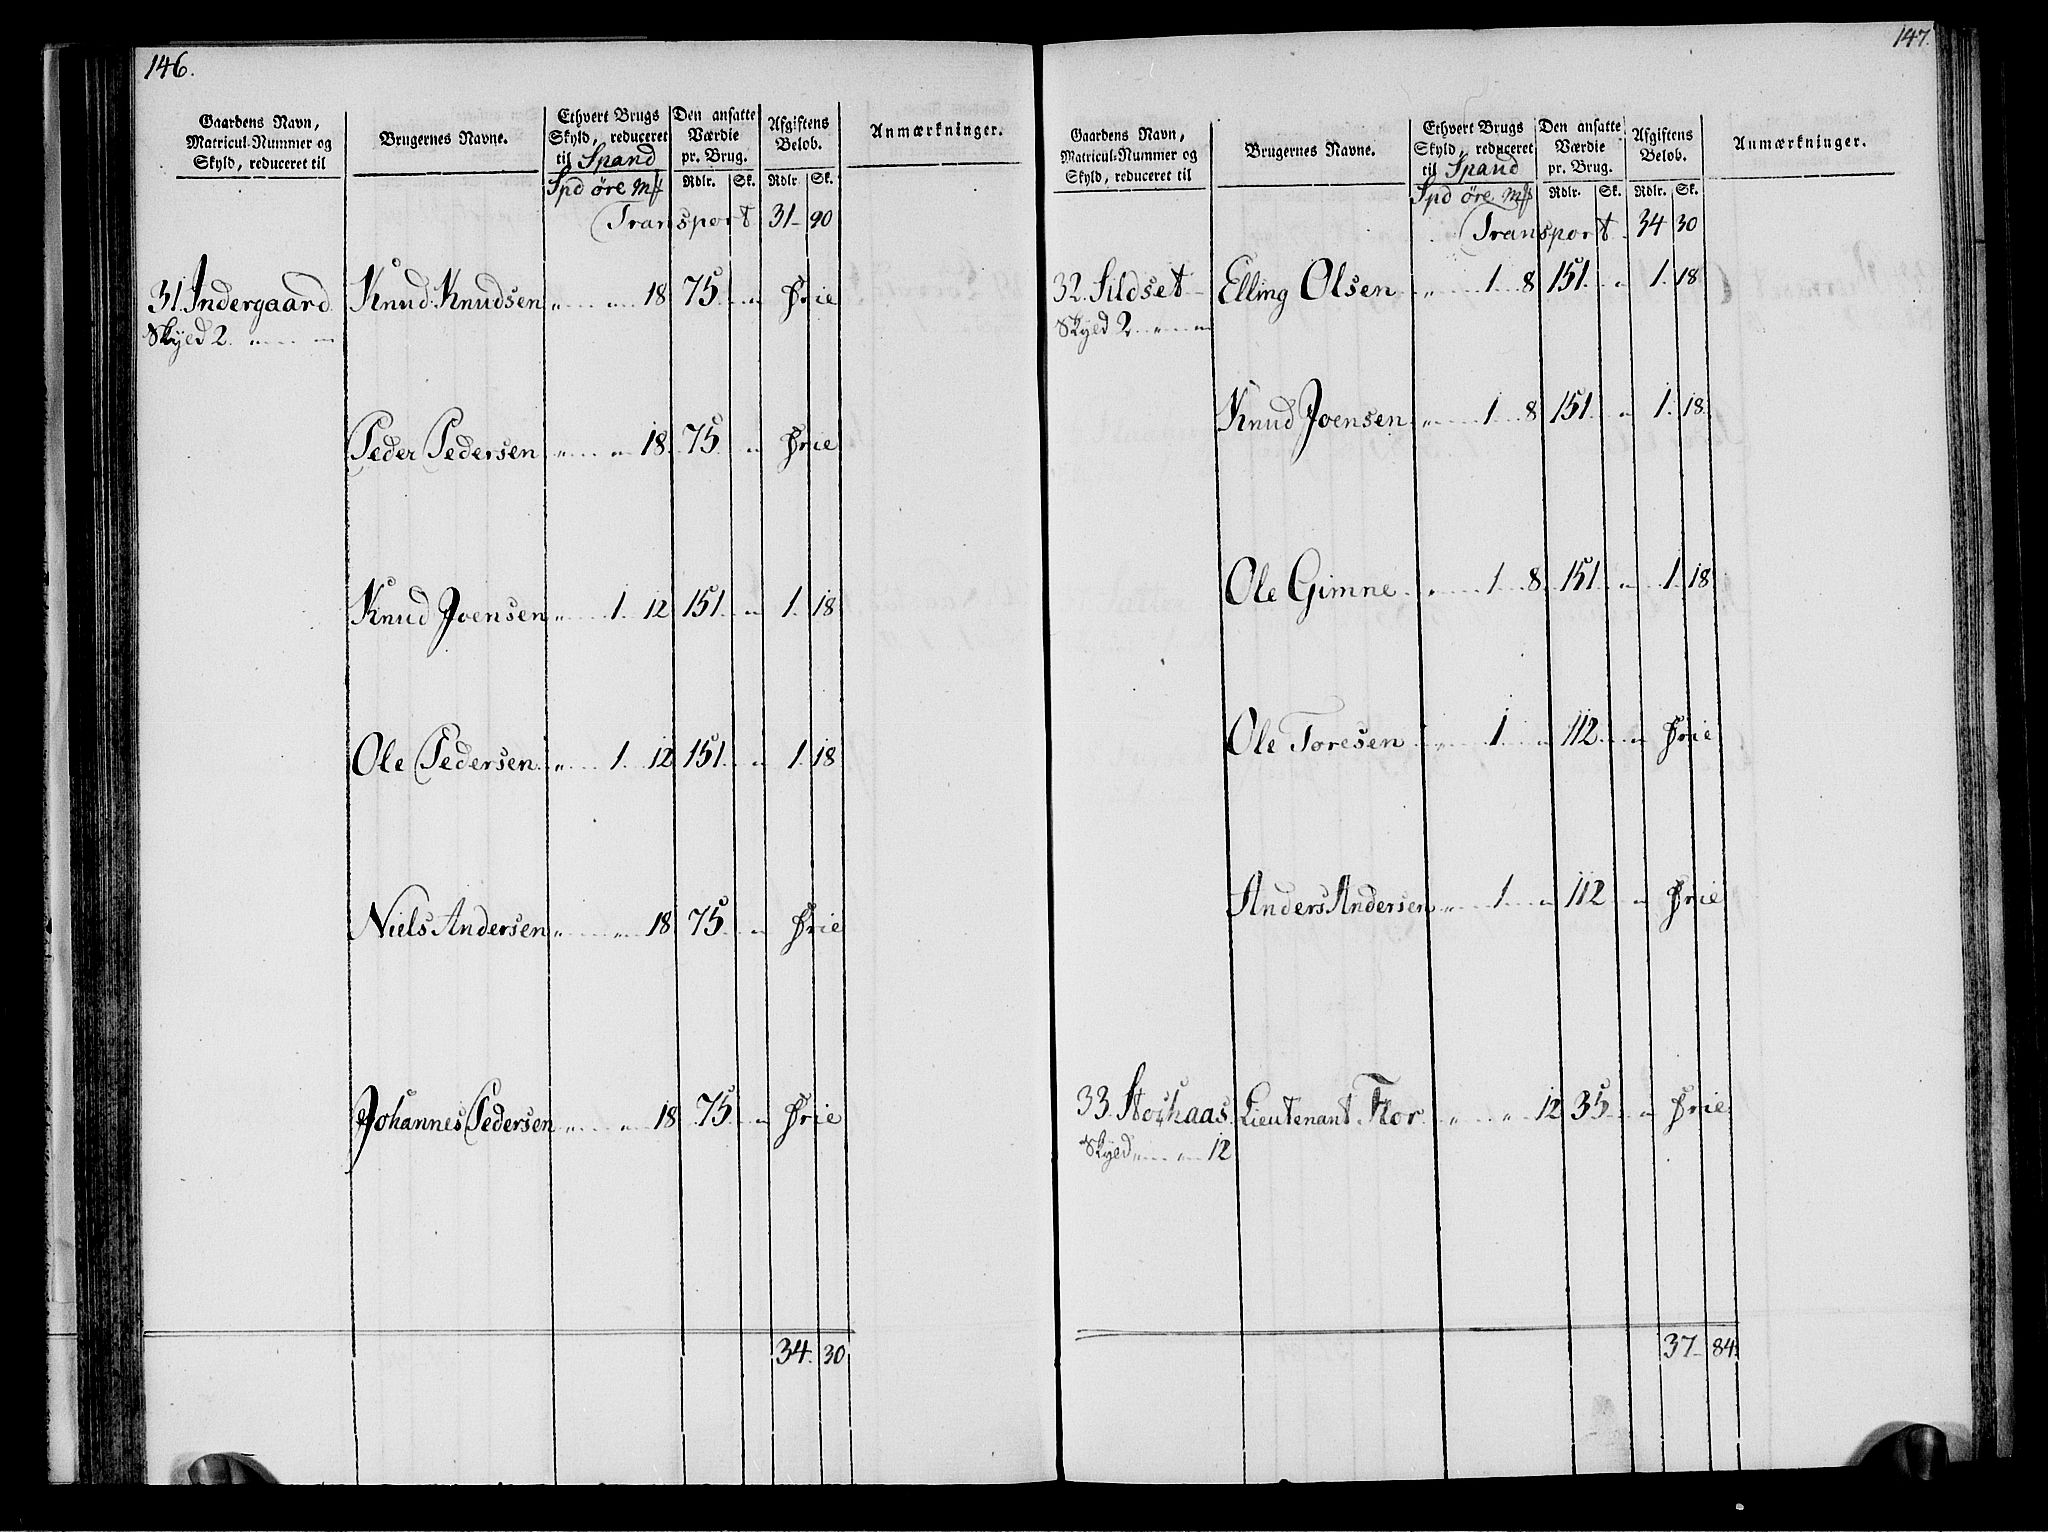 146.
Gaardens Navn, Matricul-Nummer og Skyld, reduceret til | Brugernes Navne. | Ethvert Brugs Skyld, reduceret til Spand | Den ansatte Værdie pr. Brug. | Afgiftens Belob. | Anmærkninger.
Spd øre mʄ | Rdlr. | Sk. | Rdlr. | Sk.
Transport 31 90
31. Indergaard Knud Knudsen " " 18 75 " Frie
Skyed 2. " "
Peder Pedersen " " 18 75 " Frie
Knud Joensen " 1 12 151 " 1 18
Ole Pedersen " 1 12 151 " 1 18
Niels Andersen " " 18 75 " Frie
Johannes Pedersen " " 18 75 " Frie
34. 30
147.
Gaardens Navn, Matricul-Nummer og Skyld, reduceret til | Brugernes Navne. | Ethvert Brugs Skyld, reduceret til Spand | Den ansatte Værdie pr. Brug. | Afgiftens Belob. | Anmærkninger.
Spd øre mʄ | Rdlr. | Sk. | Rdlr. | Sk.
Transport 34 30
32. Sildset Elling Olsen " 1 8 151 " 1 18
Skyed 2 " "
Knud Joensen " 1 8 151 " 1 18
Ole Gimne " 1 8 151 " 1 18
Ole Toresen " 1 " 112 " Frie
Anders Andersen " 1 " 112 " Frie
33. Lieutenant Flor " " 12 35 " Frie
Skyed " " 12
37 84